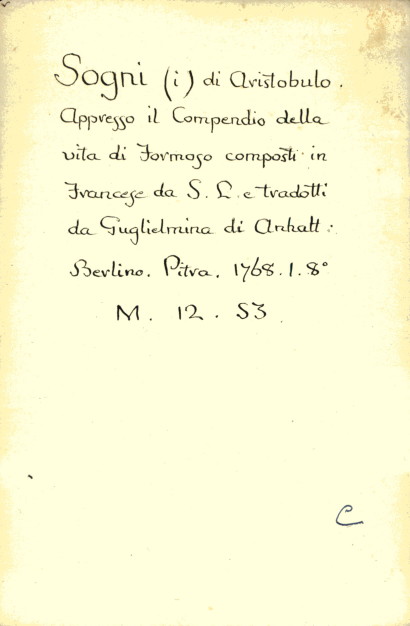 Sogni (i) di Aristobulo.
Appresso il Compendio della
vita di Formoso composti in
Francese da S. L. e tradotti
da Guglielmina di Anhalt:
Berlino. Pitra. 1768. 1. 8°
M. 12. 53
C